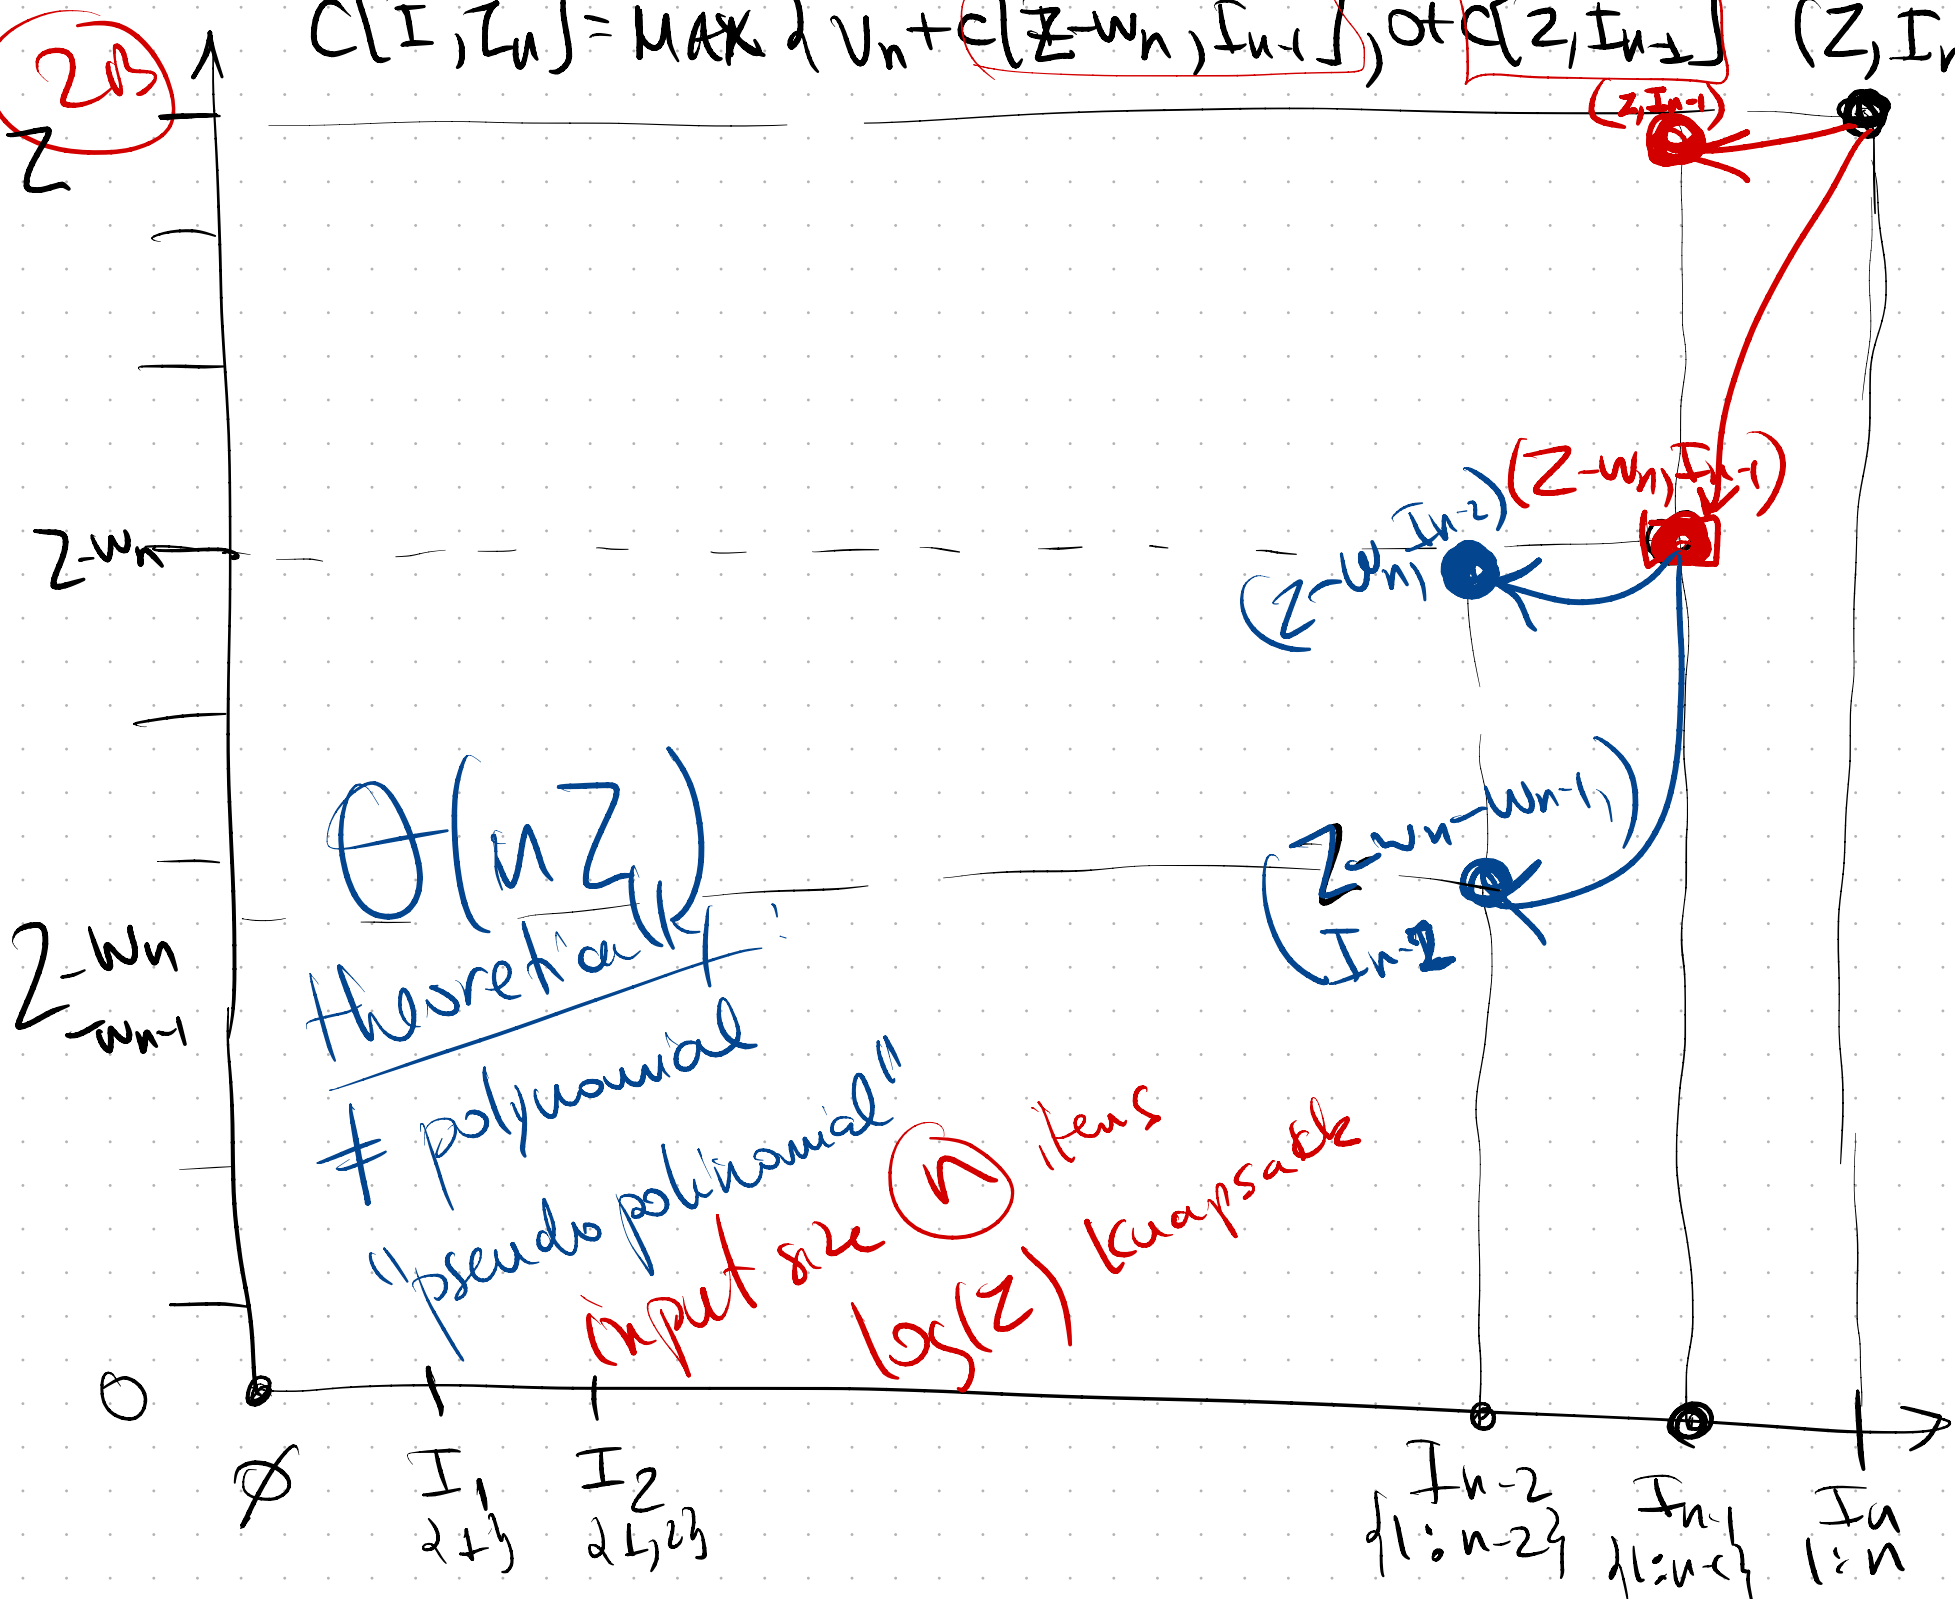 2B
C[I, Z_n] = MAX { V_n + C[Z-w_n, I_{n-1}], 0 + C[Z, I_{n-1}]
(Z, I_n
(Z, I_{n-1})
Z
(Z-w_n, I_{n-1})
(Z-w_n, I_{n-2})
Z-w_n
(Z-w_n-w_{n-1},
I_{n-2}
θ(nZ)
theoretically:
Z-w_n
-w_{n-1}
≠ polynomial
"pseudo polinomial"
input size n items
log(Z) knapsack
0
∅
I_1
{1}
I_2
{1,2}
I_{n-2}
{1:n-2}
I_{n-1}
{1:n-1}
I_n
1:n